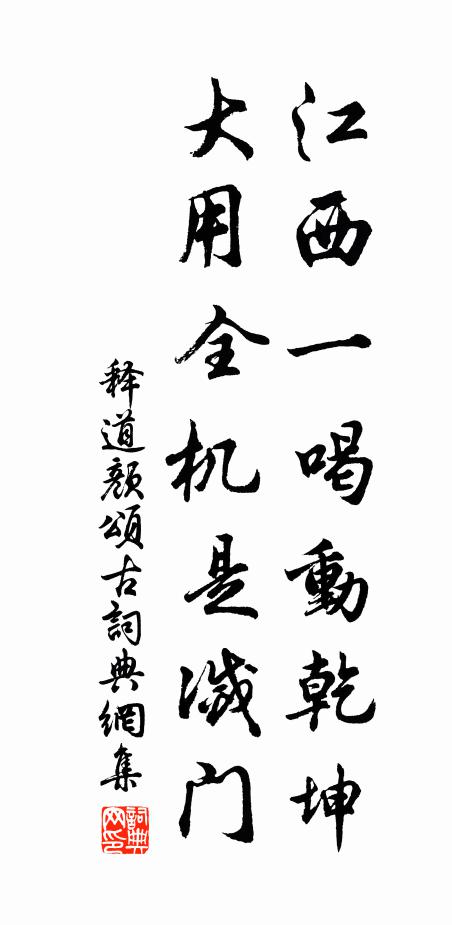 江西一喝動乾坤
大用全机是滅門
释道颜頌古詞典網集
詞典網印